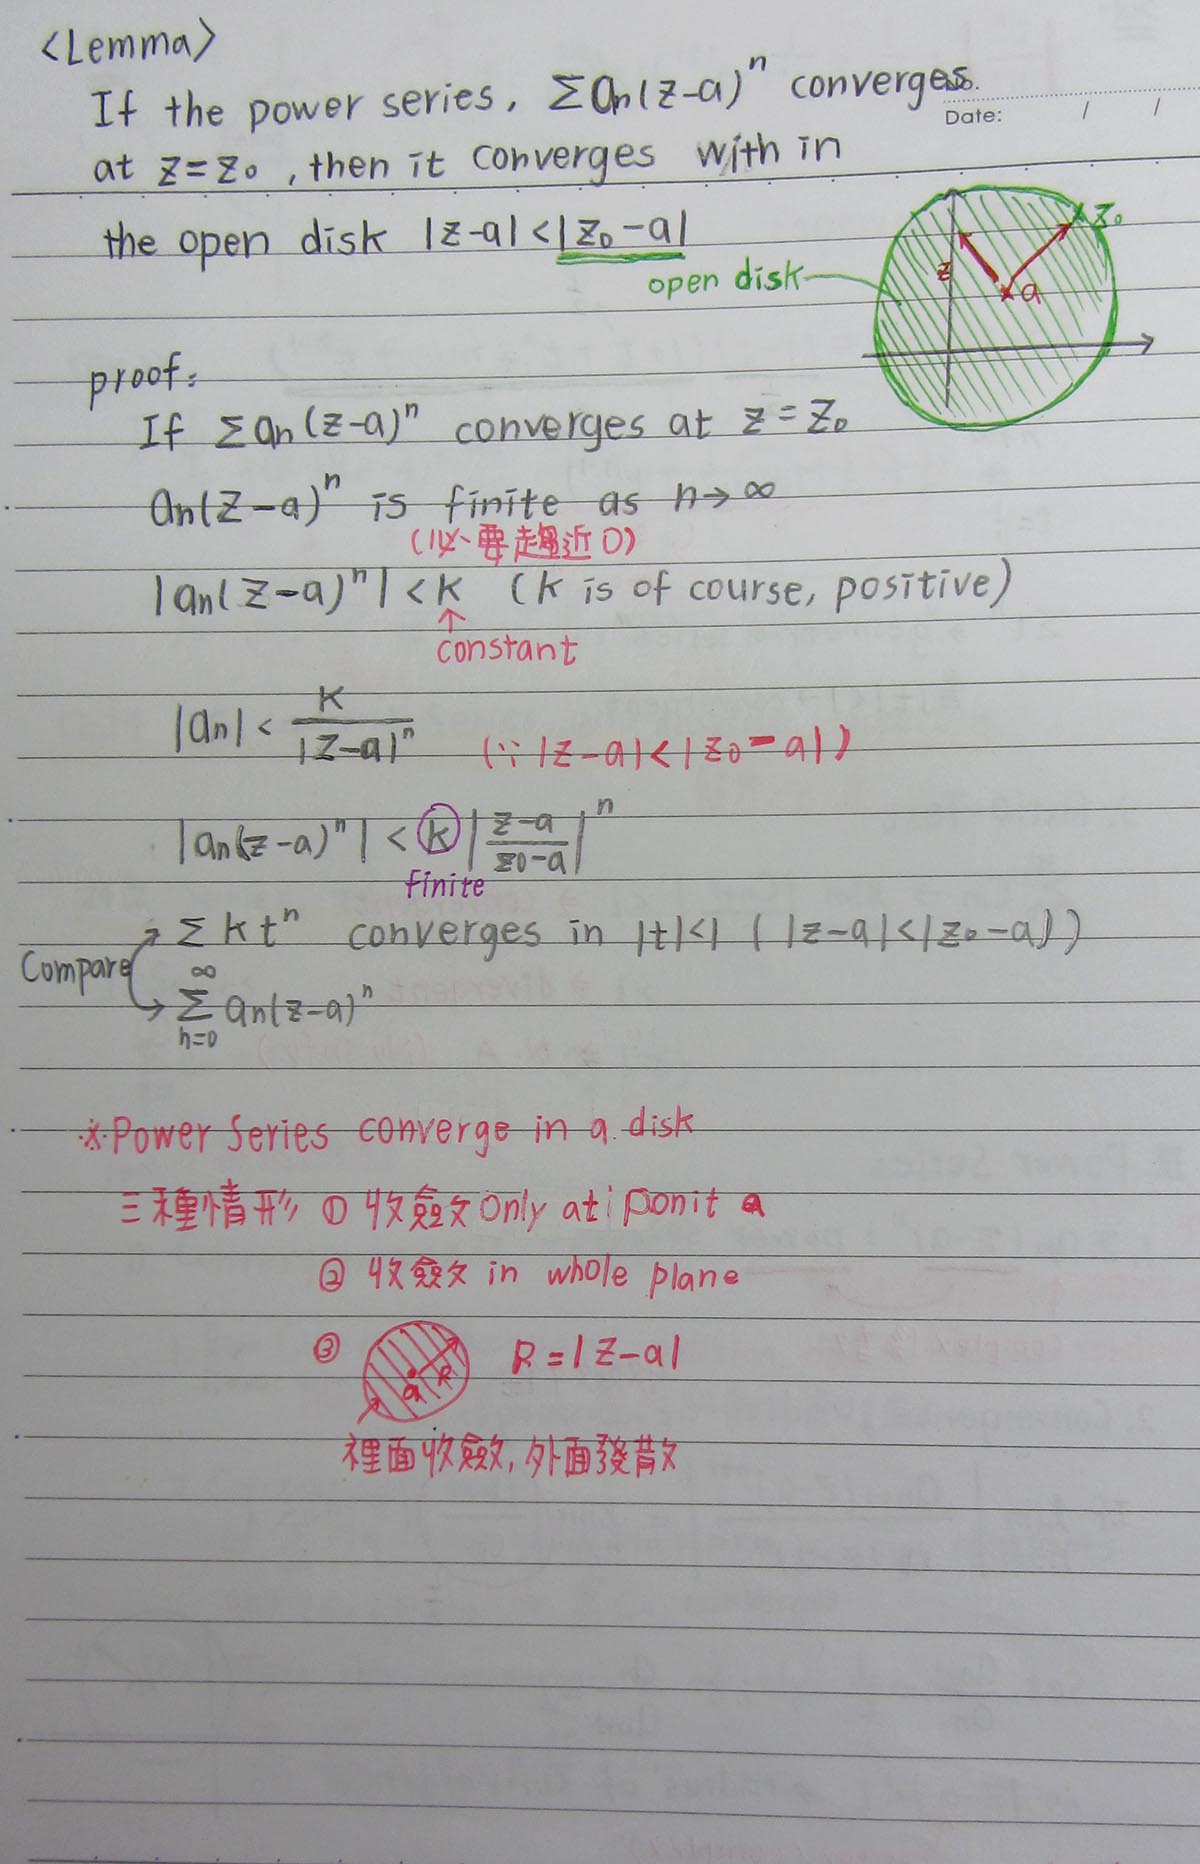 <Lemma>
If the power series, Σan(z-a)^n converges.
Date: / /
at z=z₀, then it converges with in
the open disk |z-a|<|z₀-a|
open disk
z₀
z
a
proof:
If Σan(z-a)^n converges at z=z₀
an(z-a)^n is finite as n→∞
(必要趨近0)
|an(z-a)^n|<k (k is of course, positive)
↑
constant
|an| < k/|z-a|^n (∵|z-a|<|z₀-a|)
|an(z-a)^n| < k |(z-a)/(z₀-a)|^n
finite
Σkt^n converges in |t|<1 (|z-a|<|z₀-a|)
Compare
∞
Σ an(z-a)^n
n=0
※Power Series converge in a disk
三種情形 ① 收斂 only at ponit a
② 收斂 in whole plane
③ a R R=|z-a|
裡面收斂,外面發散